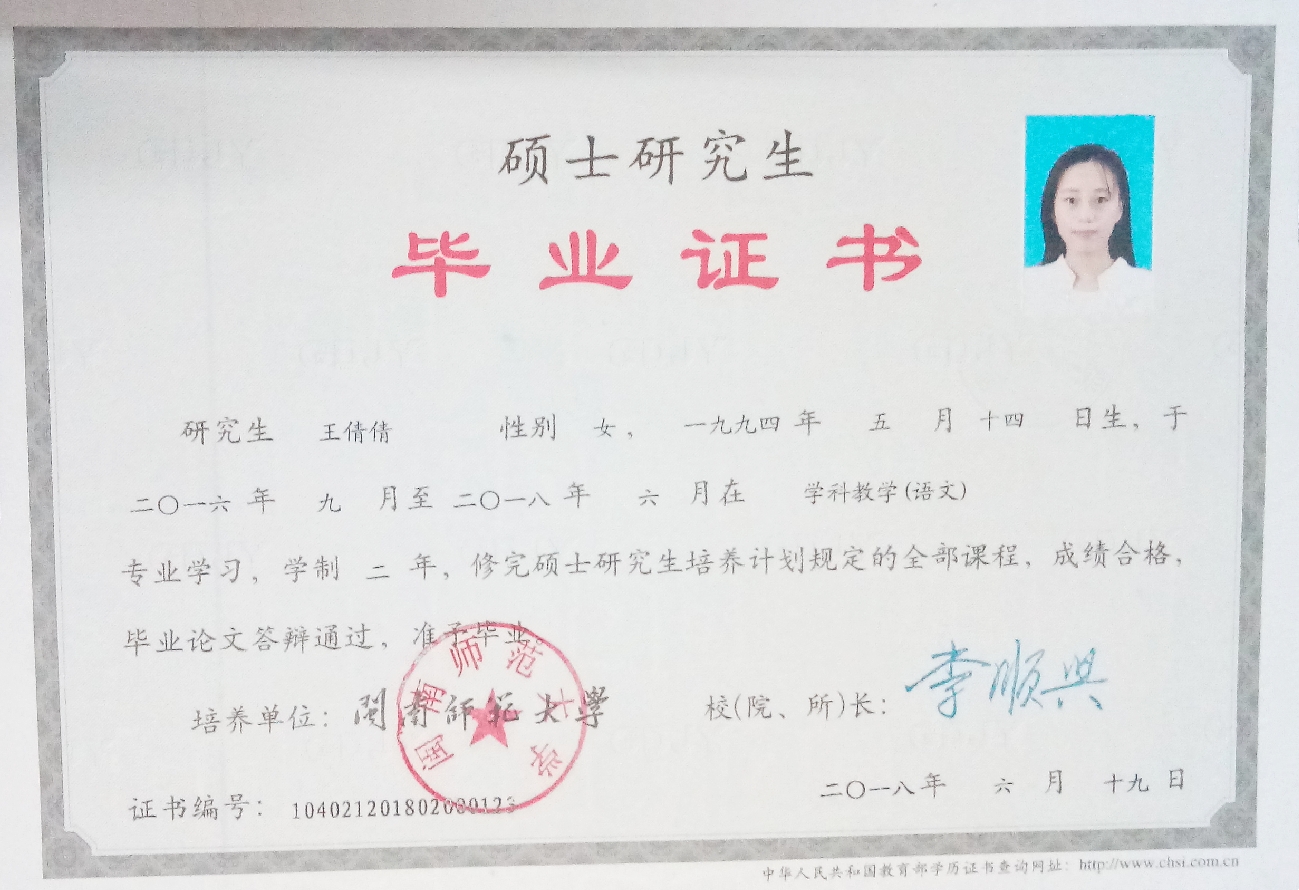 硕士研究生
毕业证书
研究生 王倩倩 性别 女， 一九九四 年 五 月 十四 日生，于
二〇一六 年 九 月至 二〇一八 年 六 月在 学科教学(语文)
专业学习，学制 二 年，修完硕士研究生培养计划规定的全部课程，成绩合格，
毕业论文答辩通过，准予毕业。
培养单位：閩南師範大學
闽南师范大学
校(院、所)长：李顺兴
证书编号：104021201802000123
二〇一八年 六 月 十九 日
中华人民共和国教育部学历证书查询网址：http://www.chsi.com.cn